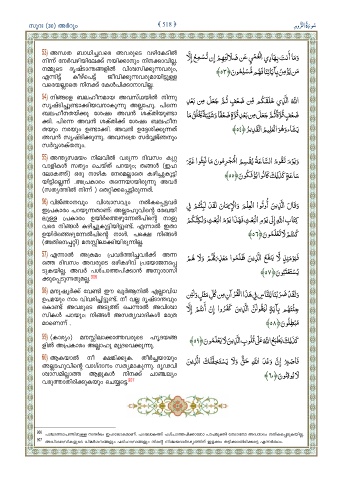 സൂറ: (30) അർറൂം
﴾ 518 ﴿
سورة الروم
53) അന്ധത ബാധിച്ചവരെ അവരുടെ വഴികേടിൽ
നിന്ന് നേർവഴിയിലേക്ക് നയിക്കാനും നിനക്കാവില്ല.
നമ്മുടെ ദൃഷ്ടാന്തങ്ങളിൽ വിശ്വസിക്കുന്നവരും,
എന്നിട്ട് കീഴ്പെട്ട് ജീവിക്കുന്നവരുമായിട്ടുള്ള
വരെയല്ലാതെ നിനക്ക് കേൾപിക്കാനാവില്ല.
وَمَا أَنتَ بِهَادِي الْعُمْيِ عَن ضَلَالَتِهِمْ إِن تُسْمِعُ إِلَّا
مَن يُؤْمِنُ بِآيَاتِنَا فَهُم مُّسْلِمُونَ ﴿٥٣﴾
54) നിങ്ങളെ ബലഹീനമായ അവസ്ഥയിൽ നിന്നു
സൃഷ്ടിച്ചുണ്ടാക്കിയവനാകുന്നു അല്ലാഹു. പിന്നെ
ബലഹീനതയ്ക്കു ശേഷം അവൻ ശക്തിയുണ്ടാ
ക്കി. പിന്നെ അവൻ ശക്തിക്ക് ശേഷം ബലഹീന
തയും നരയും ഉണ്ടാക്കി. അവൻ ഉദ്ദേശിക്കുന്നത്
അവൻ സൃഷ്ടിക്കുന്നു. അവനത്രെ സർവ്വജ്ഞനും
സർവ്വശക്തനും.
اللَّهُ الَّذِي خَلَقَكُم مِّن ضَعْفٍ ثُمَّ جَعَلَ مِن بَعْدِ
ضَعْفٍ قُوَّةً ثُمَّ جَعَلَ مِن بَعْدِ قُوَّةٍ ضَعْفًا وَشَيْبَةً يَخْلُقُ مَا
يَشَاءُ وَهُوَ الْعَلِيمُ الْقَدِيرُ ﴿٥٤﴾
55) അന്ത്യസമയം നിലവിൽ വരുന്ന ദിവസം കുറ്റ
വാളികൾ സത്യം ചെയ്ത് പറയും; തങ്ങൾ (ഇഹ
ലോകത്ത്) ഒരു നാഴിക നേരമല്ലാതെ കഴിച്ചുകൂട്ടി
യിട്ടില്ലെന്ന് അപ്രകാരം തന്നെയായിരുന്നു അവർ
(സത്യത്തിൽ നിന്ന് ) തെറ്റിക്കപ്പെട്ടിരുന്നത്.
وَيَوْمَ تَقُومُ السَّاعَةُ يُقْسِمُ الْمُجْرِمُونَ مَا لَبِثُوا غَيْرَ
سَاعَةٍ كَذَٰلِكَ كَانُوا يُؤْفَكُونَ ﴿٥٥﴾
56) വിജ്ഞാനവും വിശ്വാസവും നൽകപ്പെട്ടവർ
ഇപ്രകാരം പറയുന്നതാണ്: അല്ലാഹുവിന്റെ രേഖയി
ലുള്ള പ്രകാരം ഉയിർത്തെഴുന്നേൽപിന്റെ നാളു
വരെ നിങ്ങൾ കഴിച്ചുകൂട്ടിയിട്ടുണ്ട്. എന്നാൽ ഇതാ
ഉയിർത്തെഴുന്നേൽപിന്റെ നാൾ. പക്ഷെ നിങ്ങൾ
(അതിനെപ്പറ്റി) മനസ്സിലാക്കിയിരുന്നില്ല.
وَقَالَ الَّذِينَ أُوتُوا الْعِلْمَ وَالْإِيمَانَ لَقَدْ لَبِثْتُمْ فِي
كِتَابِ اللَّهِ إِلَىٰ يَوْمِ الْبَعْثِ فَهَٰذَا يَوْمُ الْبَعْثِ وَلَٰكِنَّكُمْ
كُنتُمْ لَا تَعْلَمُونَ ﴿٥٦﴾
57) എന്നാൽ അക്രമം പ്രവർത്തിച്ചവർക്ക് അന്ന
ത്തെ ദിവസം അവരുടെ ഒഴികഴിവ് പ്രയോജനപ്പെ
ടുകയില്ല. അവർ പശ്ചാത്തപിക്കാൻ അനുശാസി
ക്കപ്പെടുന്നതുമല്ല.
فَيَوْمَئِذٍ لَّا يَنفَعُ الَّذِينَ ظَلَمُوا مَعْذِرَتُهُمْ وَلَا هُمْ
يُسْتَعْتَبُونَ ﴿٥٧﴾
58) മനുഷ്യർക്ക് വേണ്ടി ഈ ഖുർആനിൽ എല്ലാവിധ
ഉപമയും നാം വിവരിച്ചിട്ടുണ്ട്. നീ വല്ല ദൃഷ്ടാന്തവും
കൊണ്ട് അവരുടെ അടുത്ത് ചെന്നാൽ അവിശ്വാ
സികൾ പറയും: നിങ്ങൾ അസത്യവാദികൾ മാത്ര
മാണെന്ന് .
وَلَقَدْ ضَرَبْنَا لِلنَّاسِ فِي هَٰذَا الْقُرْآنِ مِن كُلِّ مَثَلٍ وَلَئِن
جِئْتَهُم بِآيَةٍ لَّيَقُولَنَّ الَّذِينَ كَفَرُوا إِنْ أَنتُمْ إِلَّا
مُبْطِلُونَ ﴿٥٨﴾
59) (കാര്യം) മനസ്സിലാക്കാത്തവരുടെ ഹൃദയങ്ങ
ളിൽ അപ്രകാരം അല്ലാഹു മുദ്രവെക്കുന്നു.
كَذَٰلِكَ يَطْبَعُ اللَّهُ عَلَىٰ قُلُوبِ الَّذِينَ لَا يَعْلَمُونَ ﴿٥٩﴾
60) ആകയാൽ നീ ക്ഷമിക്കുക. തീർച്ചയായും
അല്ലാഹുവിന്റെ വാഗ്ദാനം സത്യമാകുന്നു. ദൃഢവി
ശ്വാസമില്ലാത്ത ആളുകൾ നിനക്ക് ചാഞ്ചല്യം
വരുത്താതിരിക്കുകയും ചെയ്യട്ടെ
فَاصْبِرْ إِنَّ وَعْدَ اللَّهِ حَقٌّ وَلَا يَسْتَخِفَّنَّكَ الَّذِينَ
لَا يُوقِنُونَ ﴿٦٠﴾